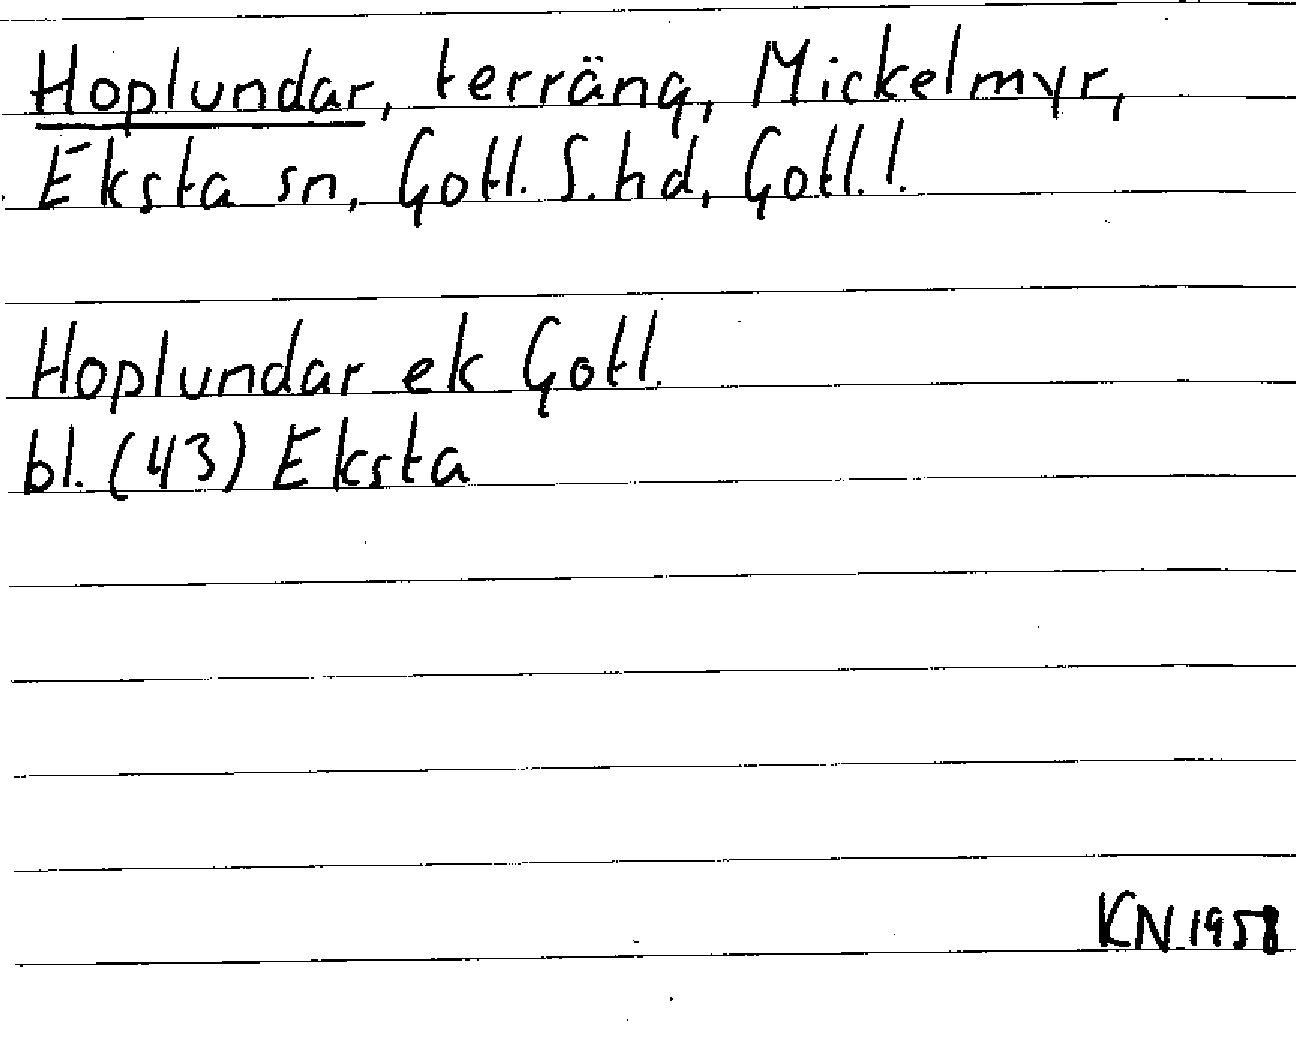 Hoplundar, terräng, Mickelmyr,
Eksta sn, Gotl. S. hd, Gotl. l.
Hoplundar ek Gotl.
bl. (43) Eksta
KN 1958